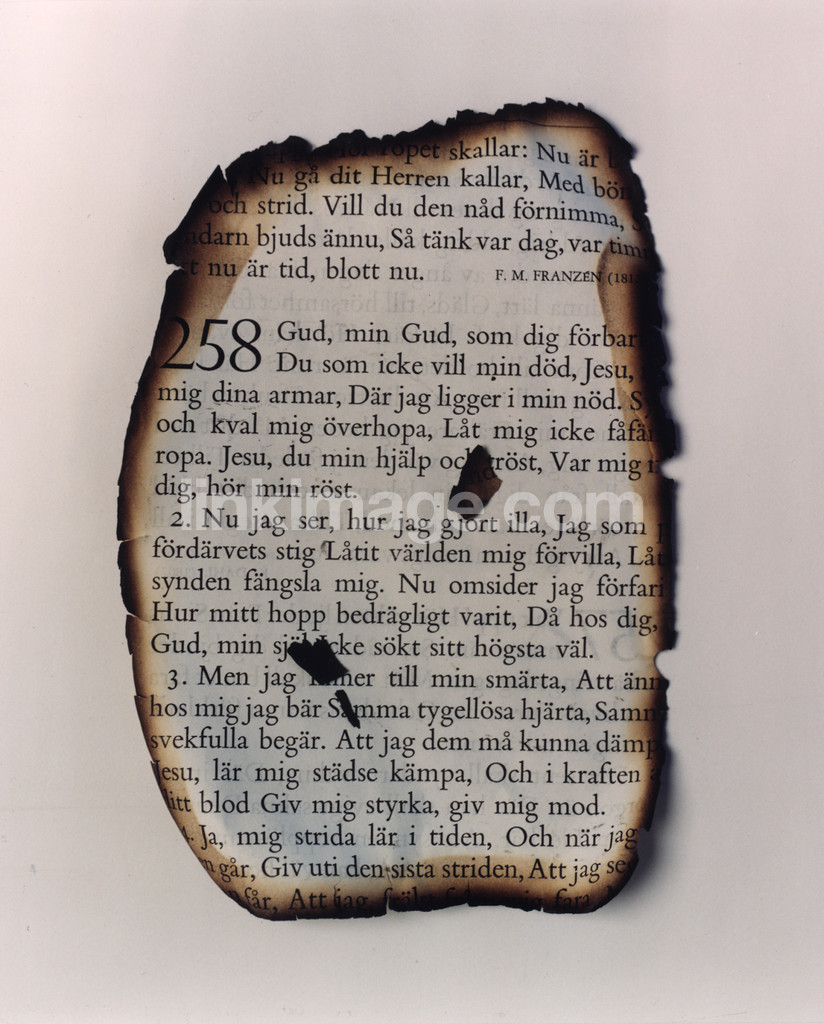 ropet skallar: Nu är
Nu gå dit Herren kallar, Med bön
och strid. Vill du den nåd förnimma,
darn bjuds ännu, Så tänk var dag, var tim
nu är tid, blott nu. F. M. FRANZÉN (181
258 Gud, min Gud, som dig förbar
Du som icke vill min död, Jesu,
mig dina armar, Där jag ligger i min nöd. S
och kval mig överhopa, Låt mig icke fåfä
ropa. Jesu, du min hjälp och tröst, Var mig
dig, hör min röst.
linkimage.com
2. Nu jag ser, hur jag gjort illa, Jag som
fördärvets stig Låtit världen mig förvilla, Låt
synden fängsla mig. Nu omsider jag förfar
Hur mitt hopp bedrägligt varit, Då hos dig,
Gud, min sj icke sökt sitt högsta väl.
3. Men jag inner till min smärta, Att änn
hos mig jag bär Samma tygellösa hjärta, Samm
svekfulla begär. Att jag dem må kunna dämp
Jesu, lär mig städse kämpa, Och i kraften
ditt blod Giv mig styrka, giv mig mod.
4. Ja, mig strida lär i tiden, Och när jag
går, Giv uti den sista striden, Att jag se
får, Att jag